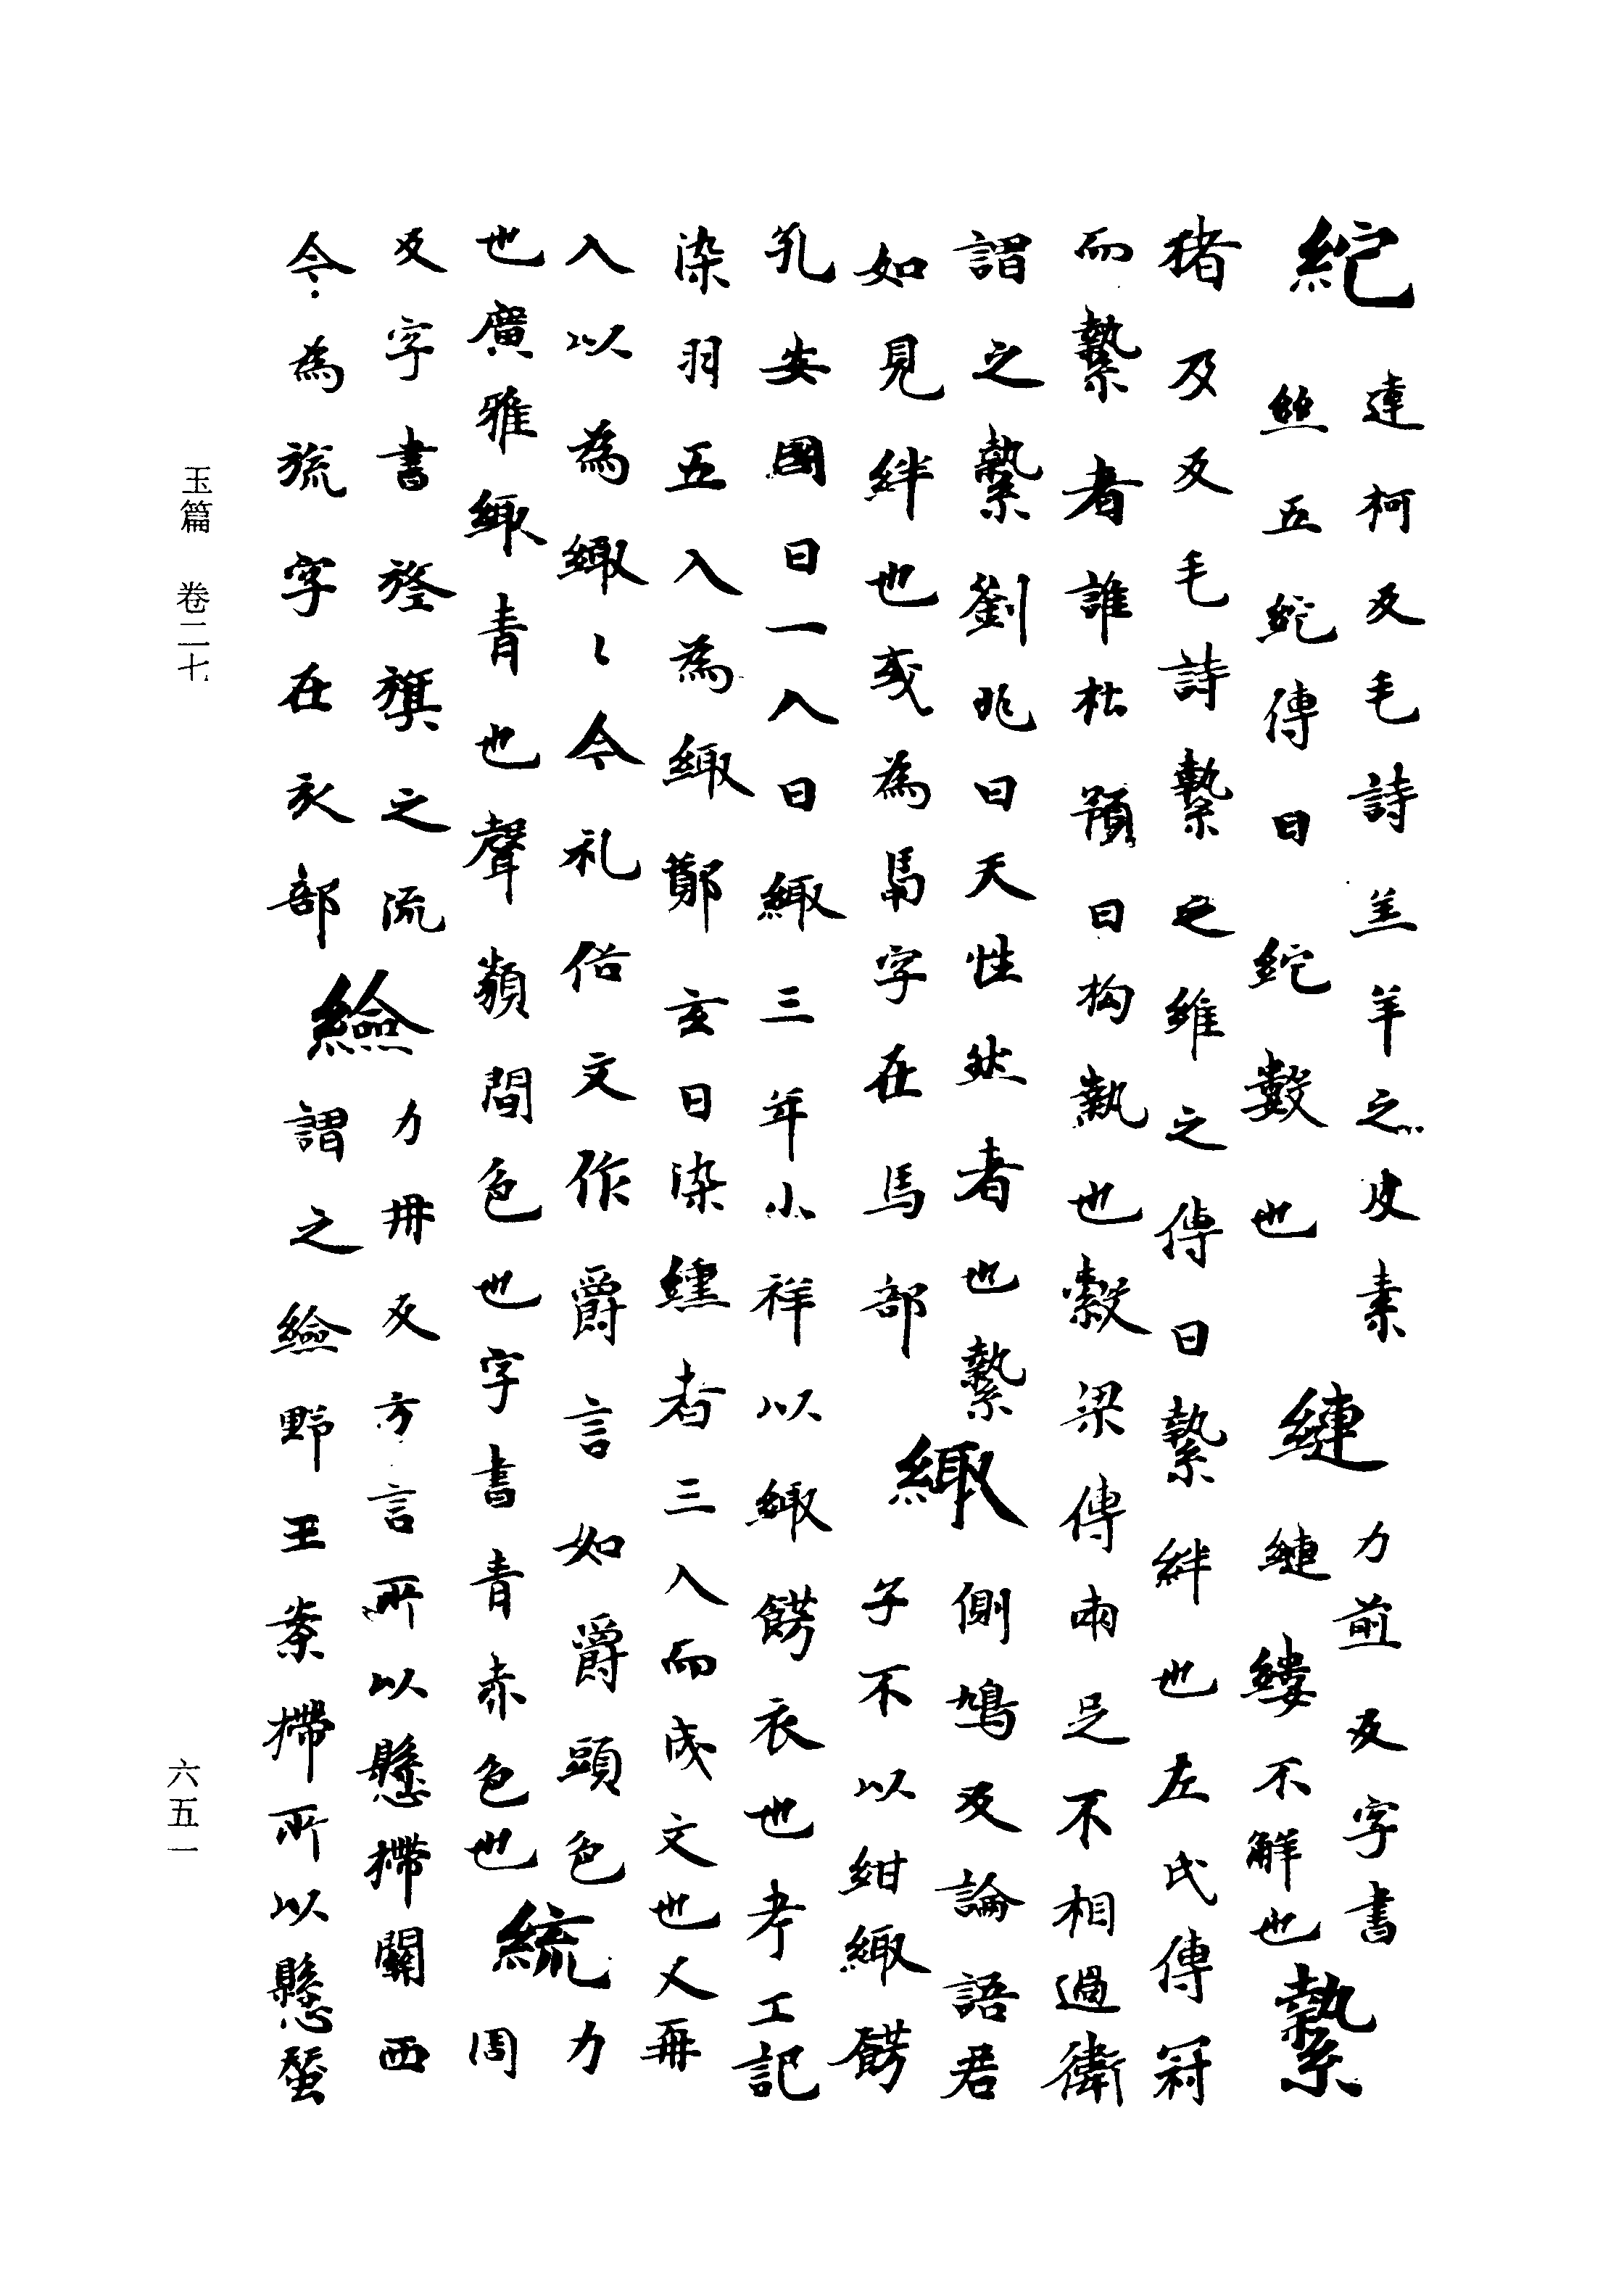 紽達柯反毛詩羔羊之皮素
絲五紽傳曰紽數也
縺力前反字書
縺縷不解也
縶
猪及反毛詩縶之維之傳曰縶絆也左氏傳冠
而縶者誰杜預曰拘執也穀梁傳兩足不相過衛
謂之縶劉兆曰天性然者也縶
如見絆也或為馽字在馬部
緅側鳩反論語君
子不以紺緅餝
孔安國曰一入曰緅三年小祥以緅餝衣也考工記
染羽五入為緅鄭玄曰染纁者三入而成文也又再
入以為緅〻今礼俗文作爵言如爵頭色
也廣雅緅青也聲類間色也字書青赤色也
力
周
反字書旌旗之流
今為旒字在㫃部
䌞力冊反方言所以懸㯂關西
謂之䌞野王案㯂所以懸蚕
玉篇 卷二十七
六五一